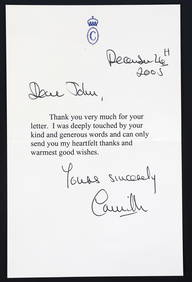 C
December
2005
Dear John,
Thank you very much for your
letter. I was deeply touched by your
kind and generous words and can only
send you my heartfelt thanks and
warmest good wishes.
Yours sincerely
Camilla